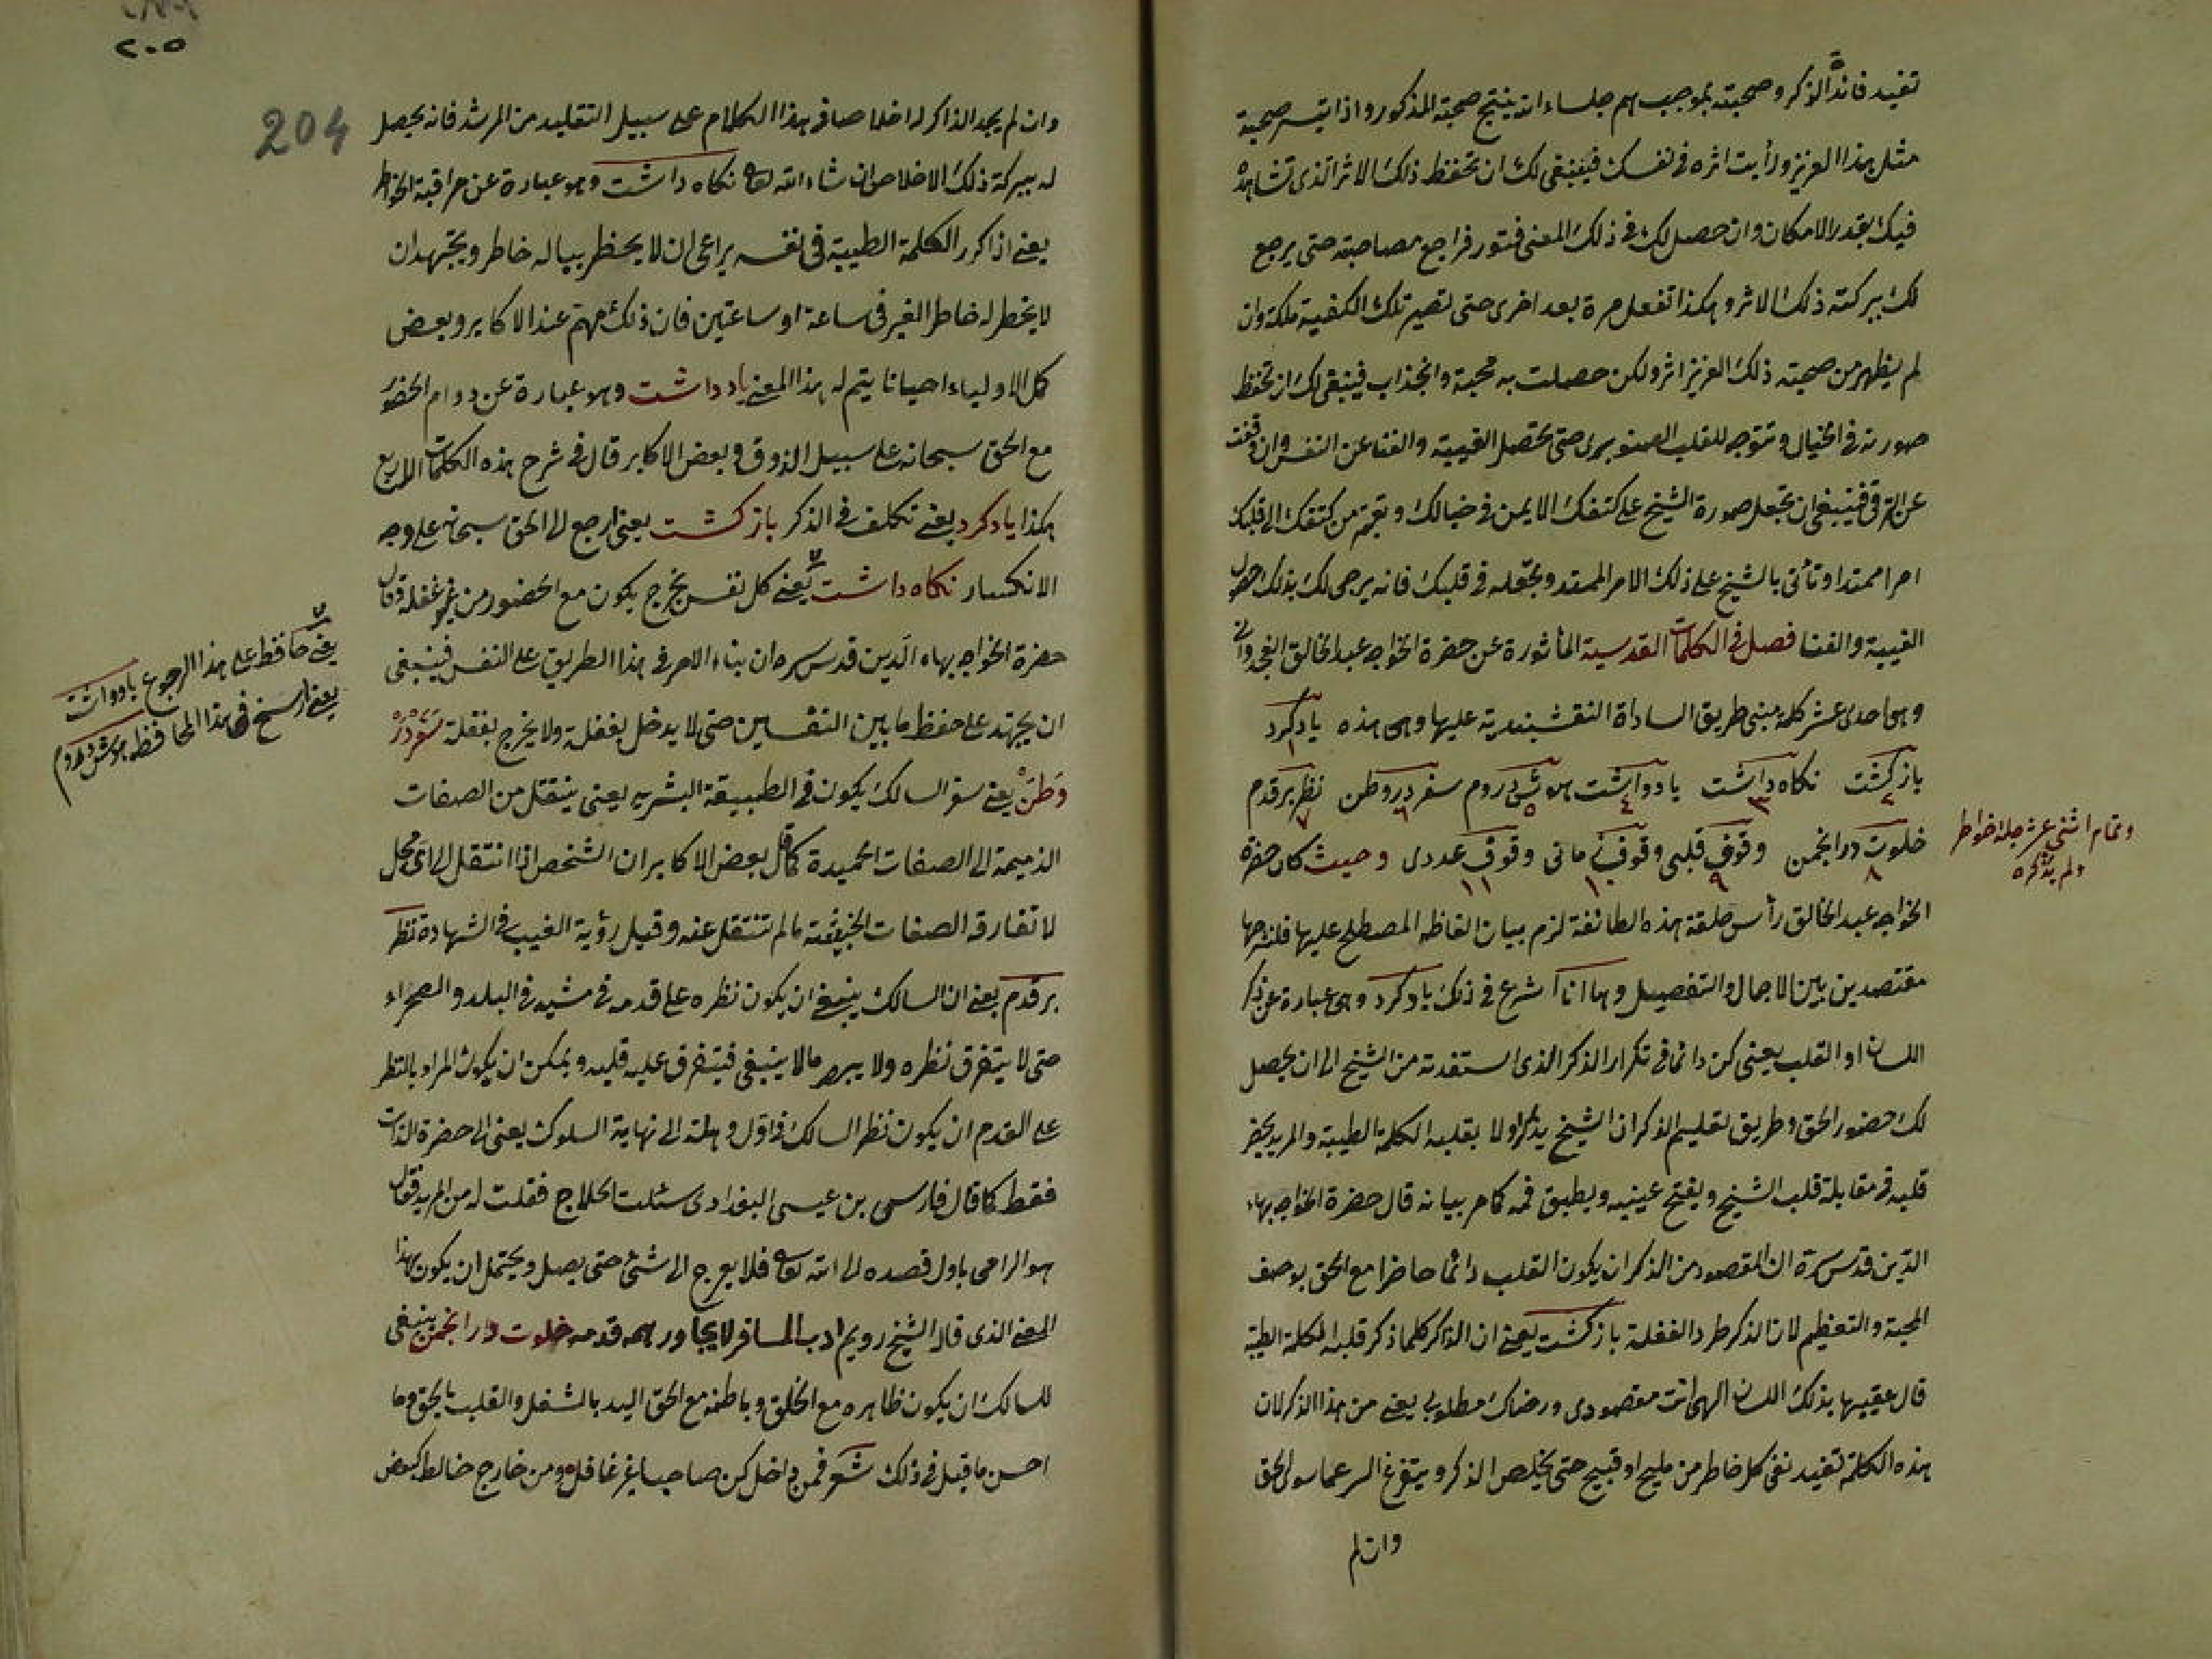 تفيد فائدة الذكر وصحبته بموجب هم جلساء الله ينتج صحبة المذكور واذا تيسر صحبة
مثل هذا العزيز ورأيت اثره في نفسك فينبغي لك ان تحفظ ذلك الاثر الذي تشاهده
فيك بقدر الامكان وان حصل لك في ذلك المعنى فتور فراجع مصاحبته حتى يرجع
لك ببركته ذلك الاثر وهكذا تفعل مرة بعد اخرى حتى تصير تلك الكيفية ملكة وان
لم يظهر من صحبته ذلك العزيز اثر ولكن حصلت به محبة وانجذاب فينبغي لك ان تحفظ
صورته في الخيال وتتوجه للقلب الصنوبري حتى تحصل الغيبة والفنا عن النفس وان وقفت
عن الترقي فينبغي ان تجعل صورة الشيخ على كتفك الايمن في خيالك وتعتبر من كتفك الى قلبك
امرا ممتدا وتأتي بالشيخ على ذلك الامر الممتد وتجعله في قلبك فانه يرجى لك بذلك حصول
الغيبة والفنا فصل في الكلمات القدسية المأثورة عن حضرة الخواجه عبد الخالق الغجدواني
وهي احدى عشر كلمة مبنى طريق الساداة النقشبندية عليها وهي هذه يادكرد ١
بازكشت ٢ نكاه داشت ٣ يادداشت ٤ هوش دردم ٥ سفر در وطن ٦ نظر برقدم ٧
خلوت درانجمن ٨ وقوف قلبي ٩ وقوف زماني ١٠ وقوف عددى ١١ وحيث كان حضرة
الخواجه عبد الخالق رأس حلقة هذه الطائفة لزم بيان الفاظه المصطلح عليها فلنشرحها
مقتصدين بين الاجمال والتفصيل وها انا اشرع في ذلك يادكرد وهي عبارة عن ذكر
اللسان او القلب يعنى كن دائما في تكرار الذكر الذي استفدته من الشيخ الى ان يحصل
لك حضور الحق وطريق تعليم الذكر ان الشيخ يذكر اولا بقلبه الكلمة الطيبة والمريد يحضر
قلبه في مقابلة قلب الشيخ ويفتح عينيه ويطبق فمه كامر بيانه قال حضرة الخواجه بهاء
الدين قدس سره ان المقصود من الذكر ان يكون القلب دائما حاضرا مع الحق بوصف
المحبة والتعظيم لان الذكر طرد الغفلة بازكشت يعنى ان الذاكر كلما ذكر قلبه الكلمة الطيبة
قال عقيبها بذلك اللسان الهى انت مقصودى ورضاك مطلوبى يعنى من هذا الذكر لان
هذه الكلمة تفيد نفى كل خاطر من مليح او قبيح حتى يخلص الذكر ويتفرغ السر عما سوى الحق
وان لم
وتمام اثنى عشر
ولم يذكره
٢٠٥
204
وان لم يجد الذاكر له اخلاصا في هذا الكلام على سبيل التقليد من المرشد فانه يحصل
له ببركة ذلك الاخلاص ان شاء الله تعالى نكاه داشت وهو عبارة عن مراقبة الخواطر
يعنى اذا كرر الكلمة الطيبة في نفسه يراعى ان لا يخطر بباله خاطر ويجتهد ان
لا يخطر له خاطر الغير في ساعة او ساعتين فان ذلك مهم عند الاكابر وبعض
كمل الاولياء احيانا يتم له هذا المعنى يادداشت وهو عبارة عن دوام الحضور
مع الحق سبحانه على سبيل الذوق وبعض الاكابر قال في شرح هذه الكلمات الاربع
هكذا يادكرد يعنى تكلف في الذكر بازكشت يعنى ارجع الى الحق سبحانه على وجه
الانكسار نكاه داشت يعنى كل نفس يخرج يكون مع الحضور من غير غفلة وقال
حضرة الخواجه بهاء الدين قدس سره ان بناء الامر في هذا الطريق على النفس فينبغى
ان يجتهد على حفظ ما بين النفسين حتى لا يدخل بغفلة ولا يخرج بغفلة سفر در
وطن يعنى سفر السالك يكون في الطبيعة البشريه يعنى ينتقل من الصفات
الذميمة الى الصفات الحميدة كما قال بعض الاكابر ان الشخص اذا انتقل الى اى محل
لا تفارقه الصفات الخبيثة مالم تنتقل عنه وقيل رؤية الغيب في الشهادة نظر
برقدم يعنى ان السالك ينبغى ان يكون نظره على قدمه في مشيه في البلد والصحراء
حتى لا يتفرق نظره ولا يبصر مالا ينبغى فيتفرق عليه قلبه ويمكن ان يكون المراد بالنظر
على القدم ان يكون نظر السالك في اول وهلة الى نهاية السلوك يعنى الى حضرة الذات
فقط كما قال فارسى بن عيسى البغدادى سئلت الحلاج فقلت له من المريد فقال
هو الرامى باول قصده الى الله تعالى فلا يعرج الى شئ حتى يصل ويحتمل ان يكون هذا
المعنى الذى قال الشيخ رويم ادب المسافر لا يجاوز همه قدمه خلوت درانجمن ينبغى
للسالك ان يكون ظاهره مع الخلق وباطنه مع الحق اليد بالشغل والقلب بالحق وما
احسن ما قيل في ذلك شعر فمن داخل كن صاحبا غير غافل ومن خارج خالط كبعض
يعنى حافظ على هذا الرجوع يادداشت
يعنى ارسخ في هذا المحافظه هوش دردم